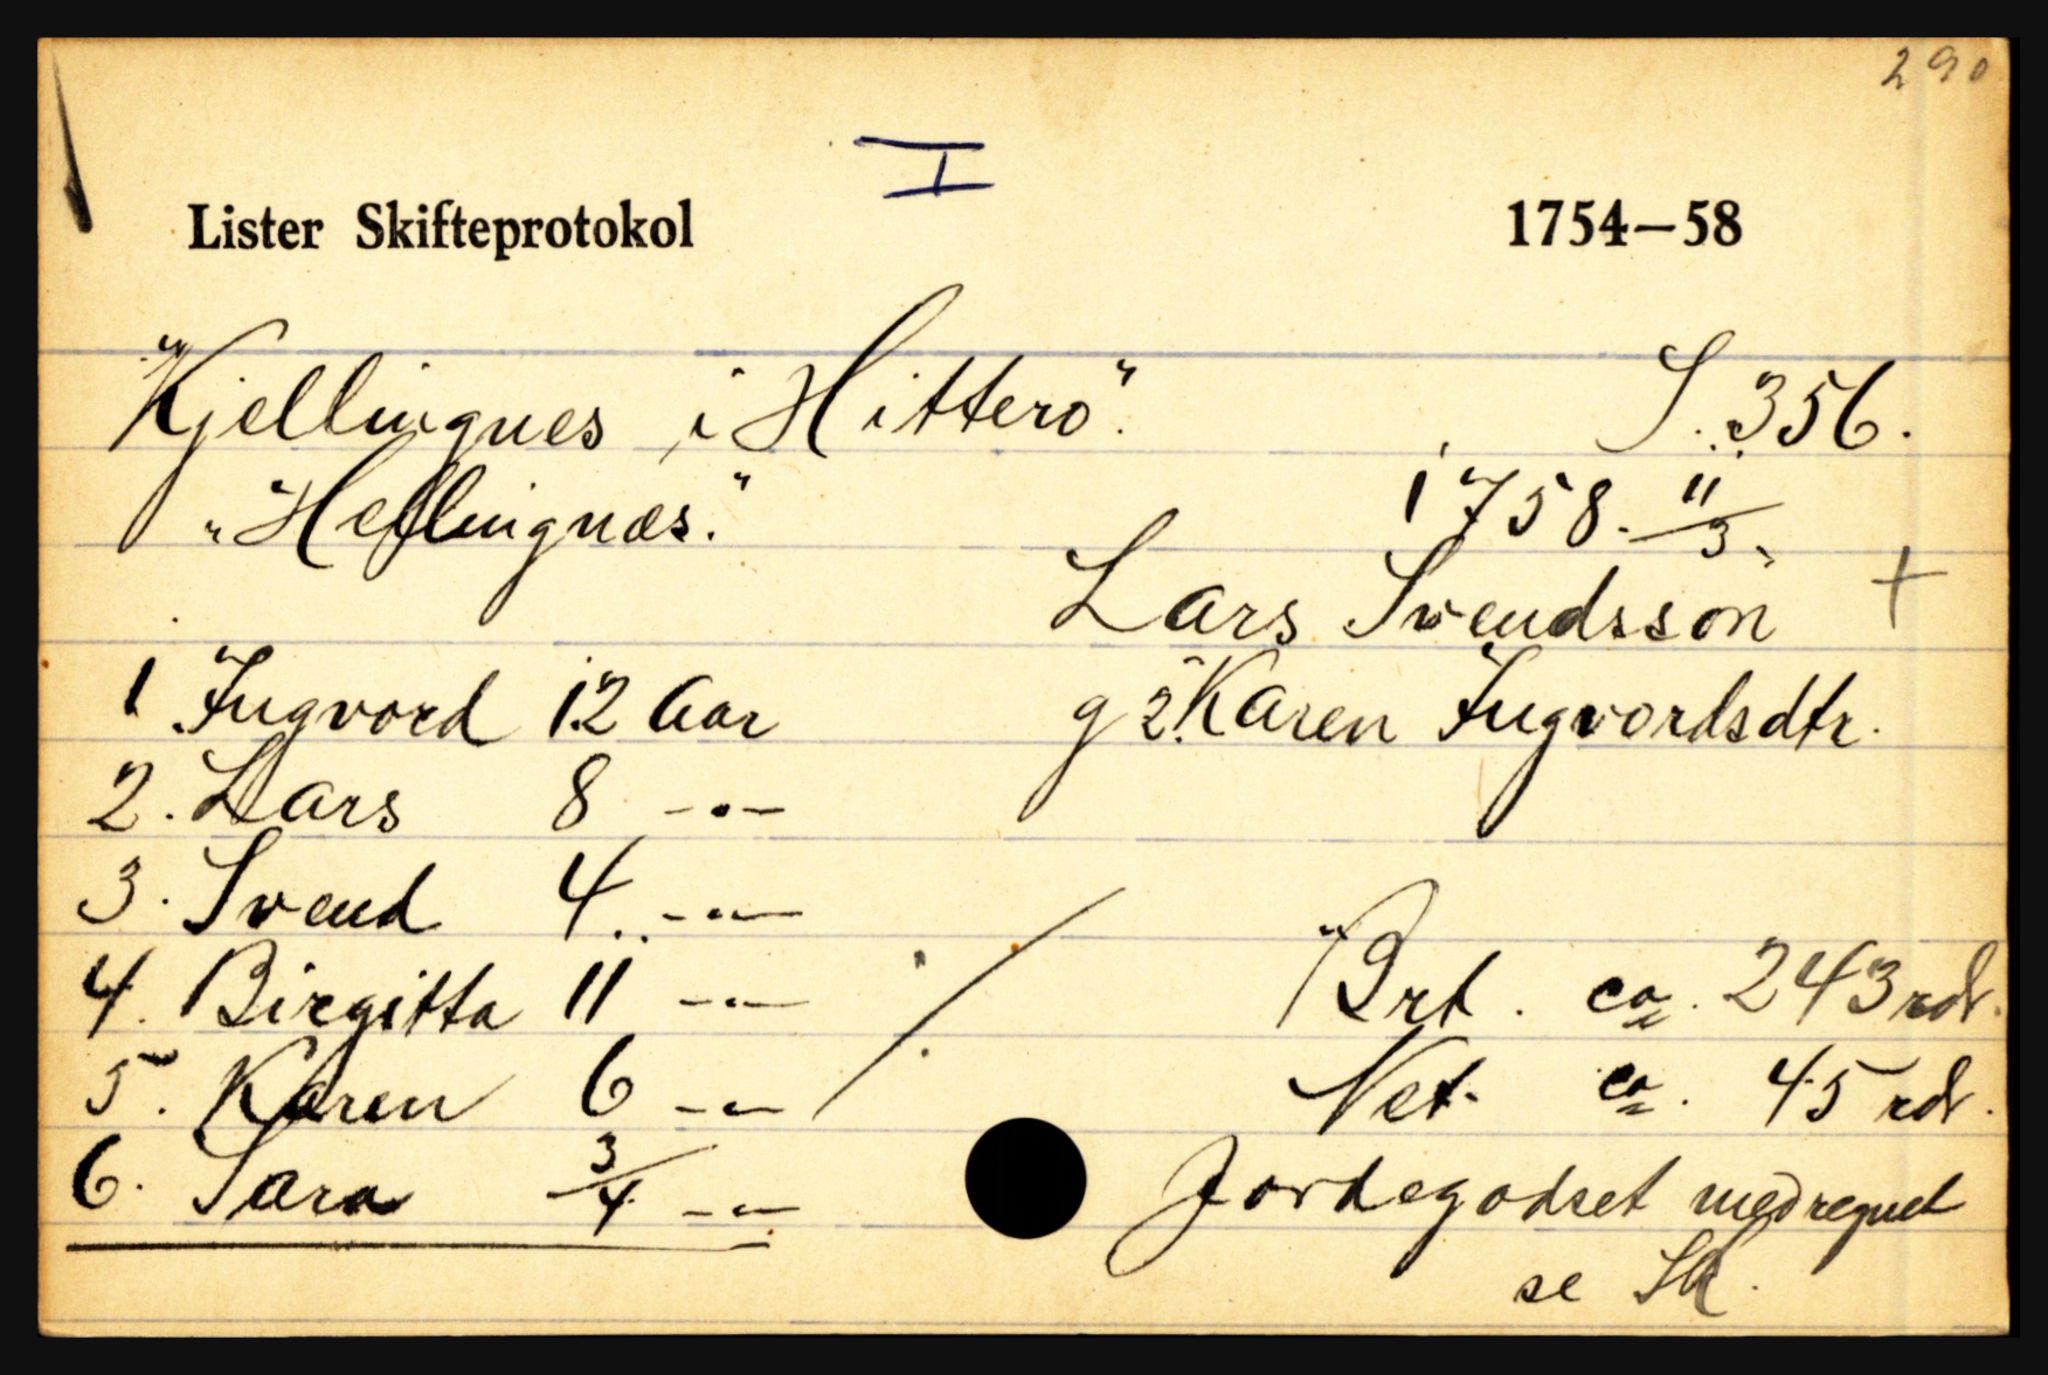 290
I
Lister Skifteprotokol 1754–58
Kjellingnes i Hitterö". S. 356.
"Hellingnæs." 1758. 11/3.
Lars Svendssön +
1 Ingvord 12 Aar g 2. Karen Ingvordsdtr.
2. Lars 8 -"-
3. Svend 4 -"-
4. Birgitta 11 -"- Brt. ca. 243 rdr.
5. Karen 6 -"- Net. ca. 45 rdr.
6. Sara 3/4 -"- Jordegodset medregnet
se Sk.